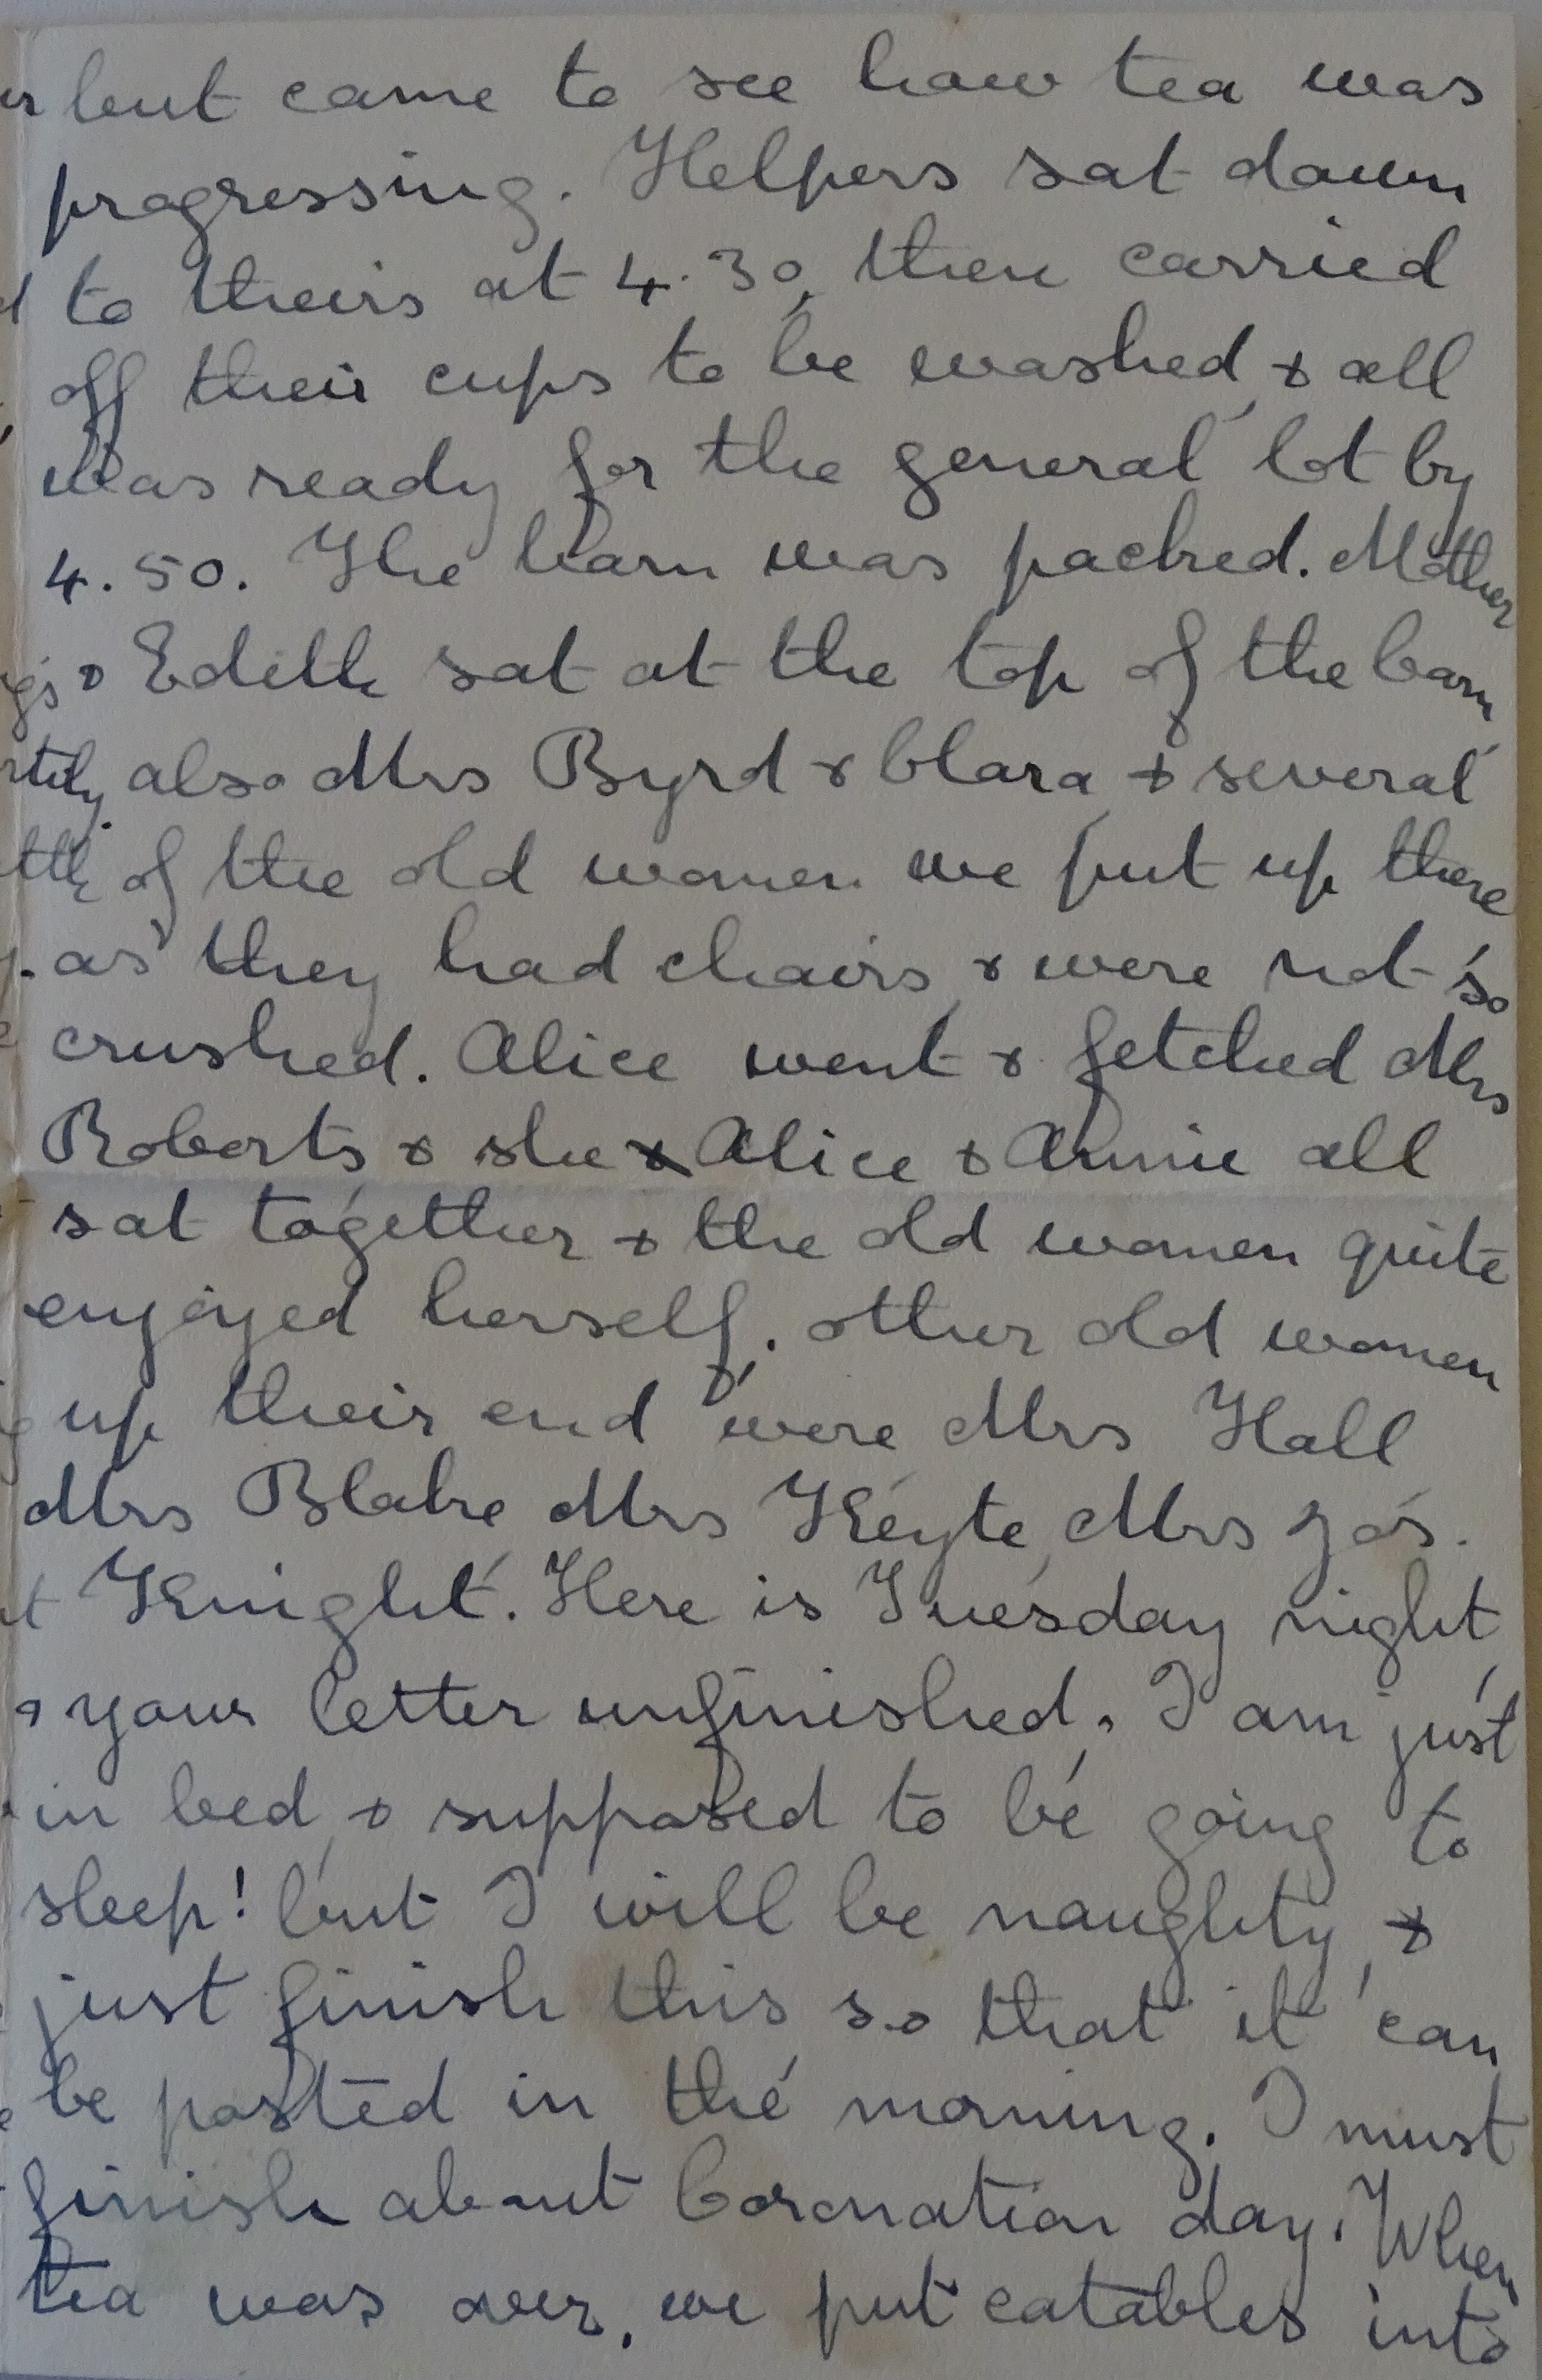 but came to see how tea was
progressing. Helpers sat down
to theirs at 4.30, then carried
off their cups to be washed, & all
was ready for the general lot by
4.50. The barn was packed. Mother
& Edith sat at the top of the barn,
also Mrs Byrd & Clara, & several
of the old women we put up there
as they had chairs, & were not so
crushed. Alice went & fetched Mrs
Roberts, & she & Alice & Annie all
sat together & the old women quite
enjoyed herself. other old women
up their end were Mrs Hall
Mrs Blake, Mrs Keyte, Mrs Jos.
Knight. Here is Tuesday night,
& your letter unfinished. I am just
in bed, & supposed to be going to
sleep! but I will be naughty, &
just finish this so that it can
be posted in the morning. I must
finish about Coronation day. When
tea was over, we put eatables into